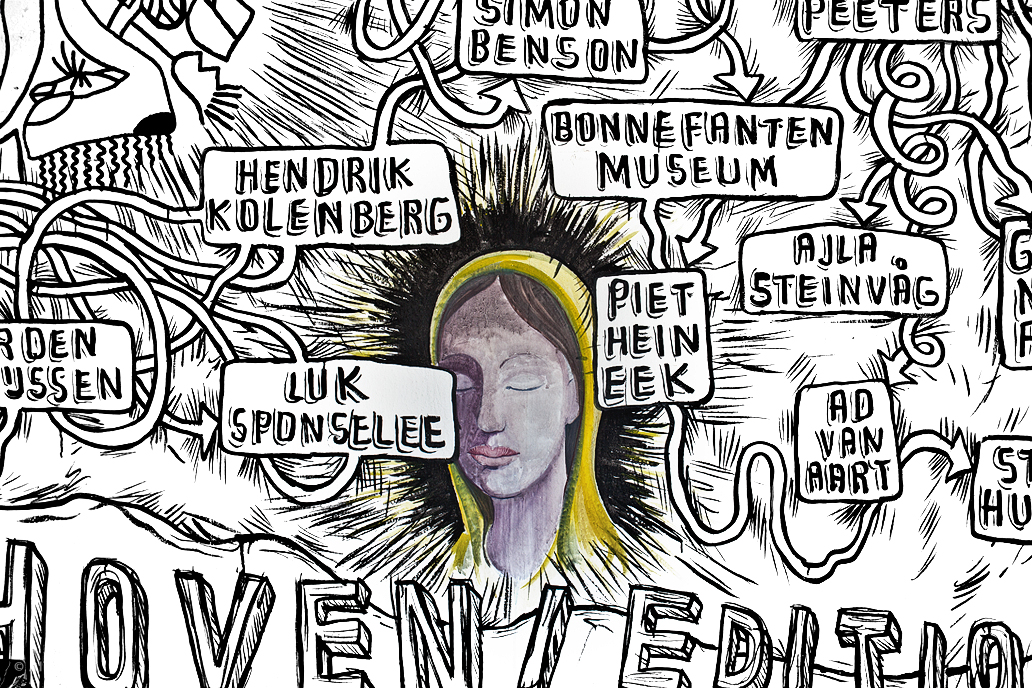 SIMON
BENSON
PEETERS
BONNEFANTEN
MUSEUM
HENDRIK
KOLENBERG
AJLA
STEINVÅG
PIET
HEIN
EEK
RDEN
YSSEN
LUK
SPONSELEE
AD
VAN
AART
ST
HU
HOVEN/EDITIO